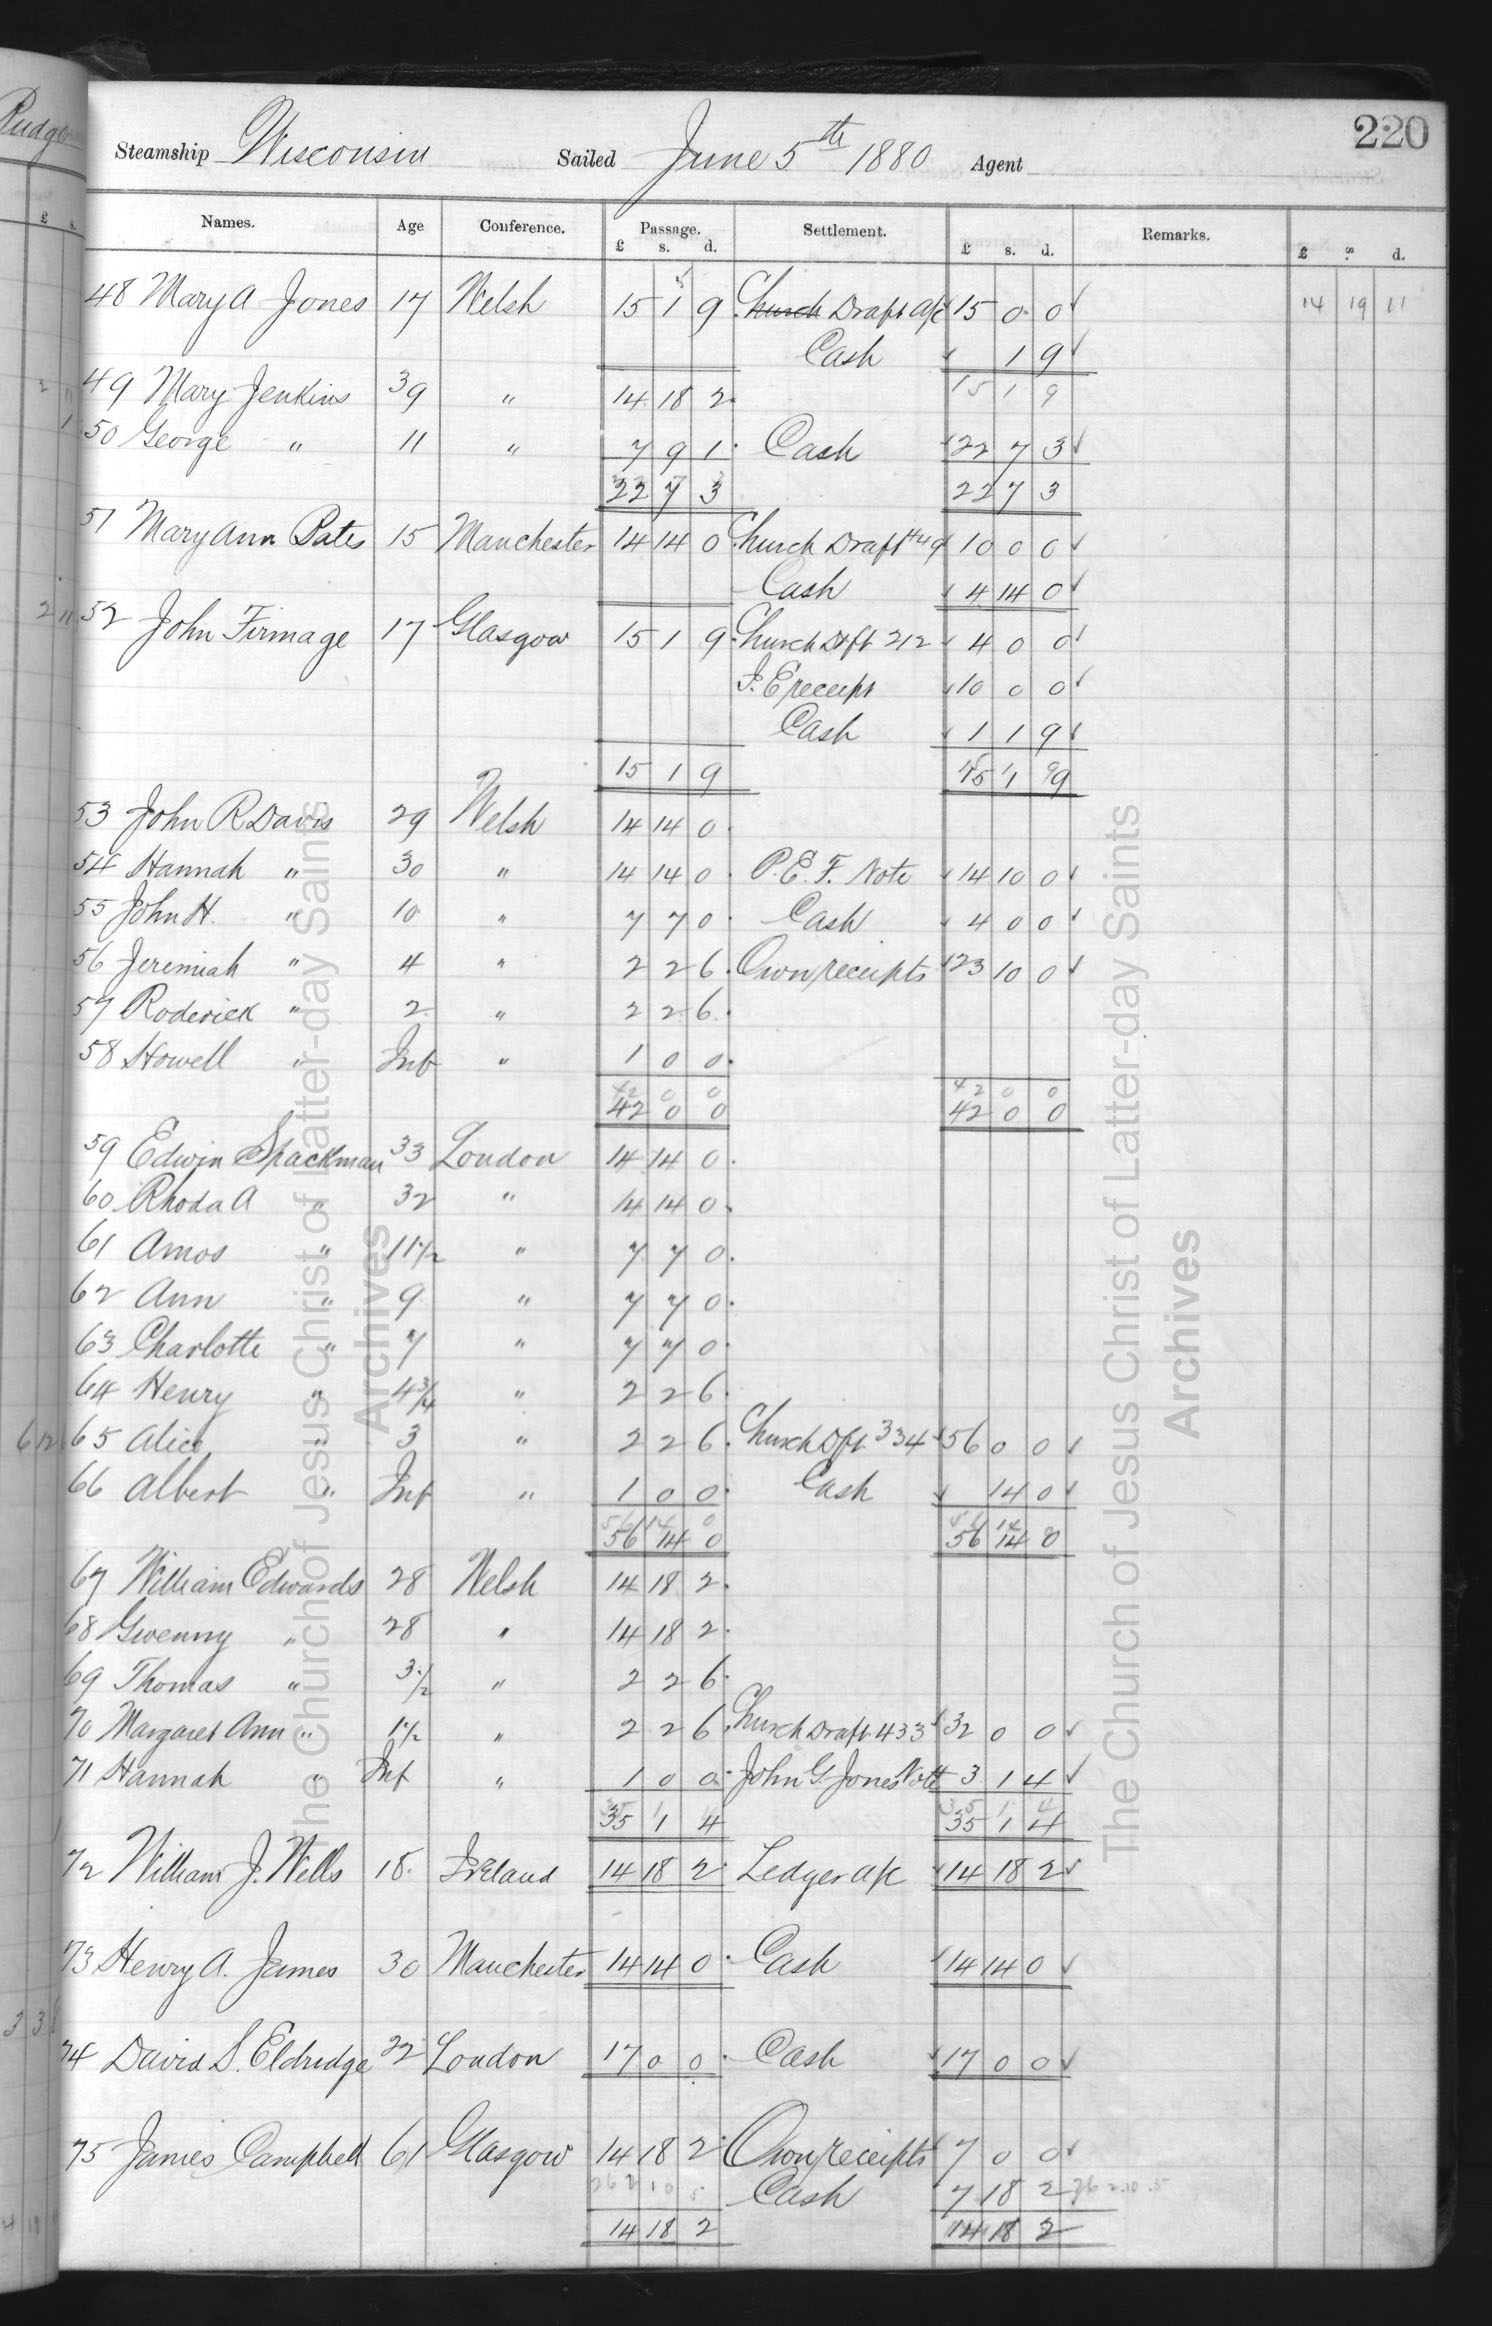 Rudge
220
Steamship Wisconsin Sailed June 5th 1880 Agent
Names. Age Conference. Passage. Settlement. £ s. d. Remarks. £ s. d.
£ s. d.
48 Mary A Jones 17 Welsh 15 1 9 Church Draft a/c 15 0 0 14 19 11
Cash 1 9
15 1 9
49 Mary Jenkins 39 " 14 18 2
50 George " 11 " 7 9 1 Cash 22 7 3
22 7 3 22 7 3
51 Mary Ann Pates 15 Manchester 14 14 0 Church Draft 449 10 0 0
Cash 4 14 0
52 John Firmage 17 Glasgow 15 1 9 Church Dft 212 4 0 0
I. E receipt 10 0 0
Cash 1 1 9
15 1 9 15 1 9
53 John R Davis 29 Welsh 14 14 0
54 Hannah " 30 " 14 14 0 P. E. F. Note 14 10 0
55 John H. " 10 " 7 7 0 Cash 4 0 0
56 Jeremiah " 4 " 2 2 6 Own receipts 23 10 0
57 Roderick " 2 " 2 2 6
58 Howell " Inf " 1 0 0
42 0 0 42 0 0
42 0 0 42 0 0
59 Edwin Spackman 33 London 14 14 0
60 Rhoda A " 32 " 14 14 0
61 Amos " 11 1/2 " 7 7 0
62 Ann " 9 " 7 7 0
63 Charlotte " 7 " 7 7 0
64 Henry " 4 3/4 " 2 2 6
65 Alice " 3 " 2 2 6 Church Dft 334 56 0 0
66 Albert " Inf " 1 0 0 Cash 14 0
56 14 0 56 14
56 14 0 56 14 0
67 William Edwards 28 Welsh 14 18 2
68 Gwenny " 28 " 14 18 2
69 Thomas " 3 1/2 " 2 2 6
70 Margaret Ann " 1 1/2 " 2 2 6 Church Draft 433 32 0 0
71 Hannah " Inf " 1 0 0 John G. Jones Note 3 1 4
35 1 4 35 1 4
72 William J. Wells 18 Ireland 14 18 2 Ledger a/c 14 18 2
73 Henry A. James 30 Manchester 14 14 0 Cash 14 14 0
74 David S. Eldredge 22 London 17 0 0 Cash 17 0 0
75 James Campbell 61 Glasgow 14 18 2 Own receipts 7 0 0
262 10 5 Cash 7 18 2 262.10.5
14 18 2 14 18 2
The Church of Jesus Christ of Latter-day Saints
Archives
The Church of Jesus Christ of Latter-day Saints
Archives